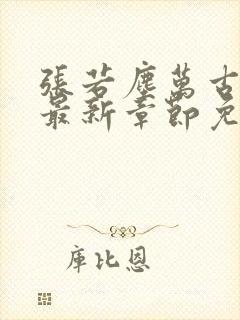 張若塵萬古
最新章節免
庫比恩